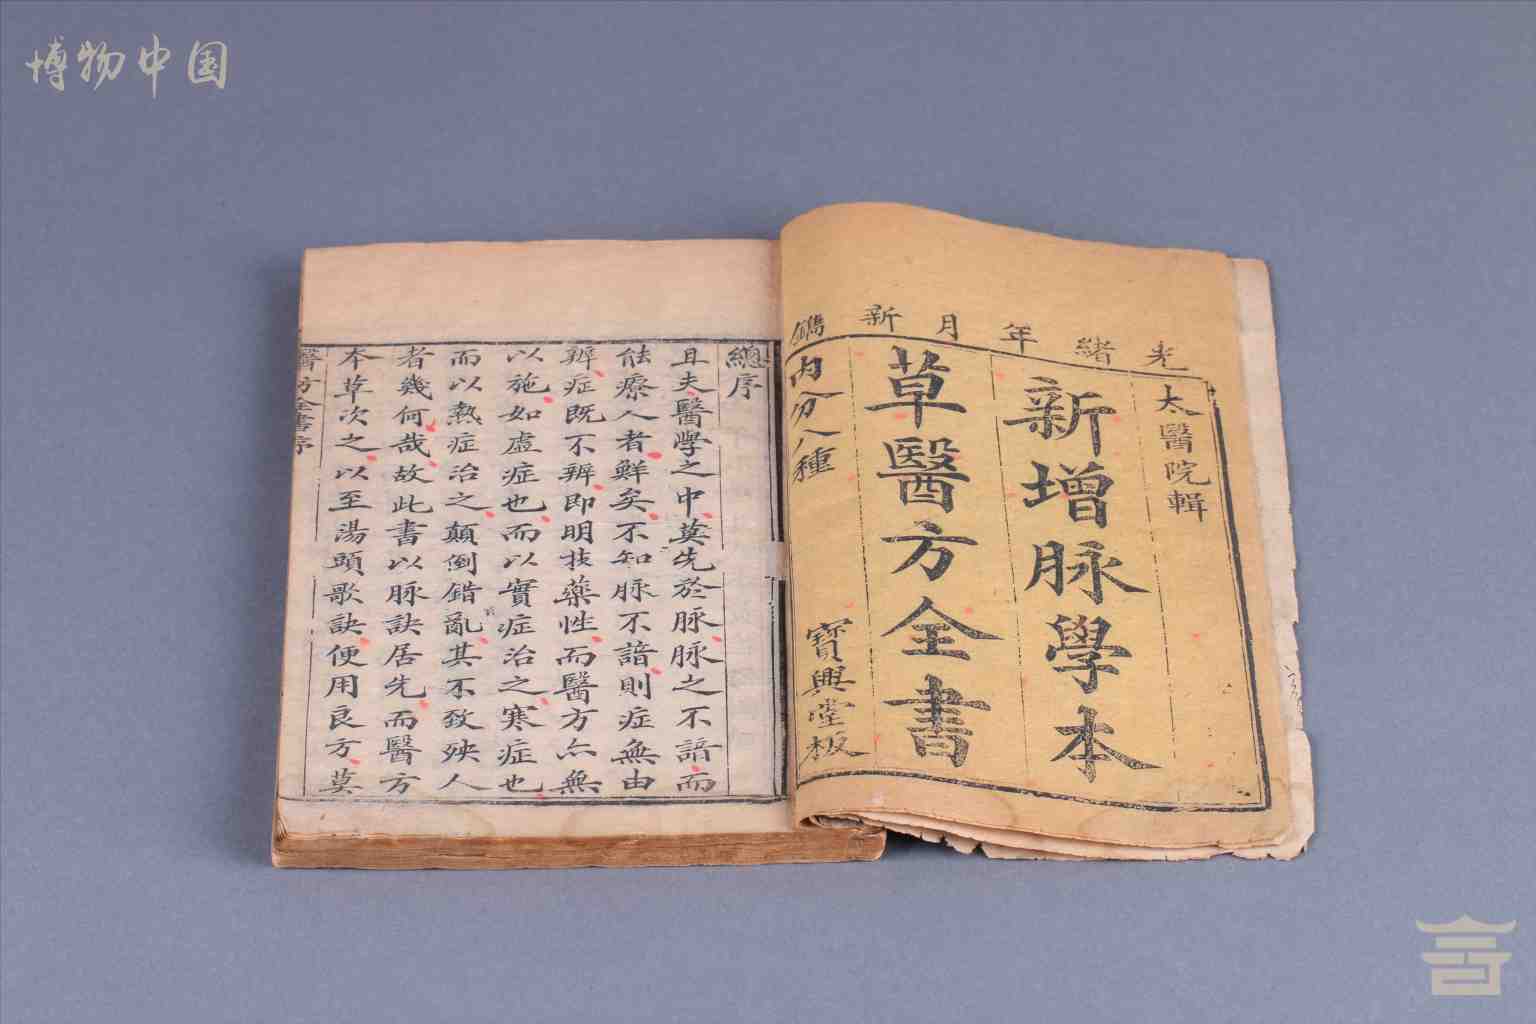 博物中国
光緒年月新鐫
太醫院輯
新增脉學本
草醫方全書
內分八種
寶興堂板
總序
且夫醫學之中莫先於脉脉之不諳而
能療人者鮮矣不知脉不諳則症無由
辨症既不辨即明技藥性而醫方亦無
以施如虛症也而以實症治之寒症也
而以熱症治之顛倒錯亂其不致殃人
者幾何哉故此書以脉訣居先而醫方
本草次之以至湯頭歌訣便用良方莫
醫方全書序